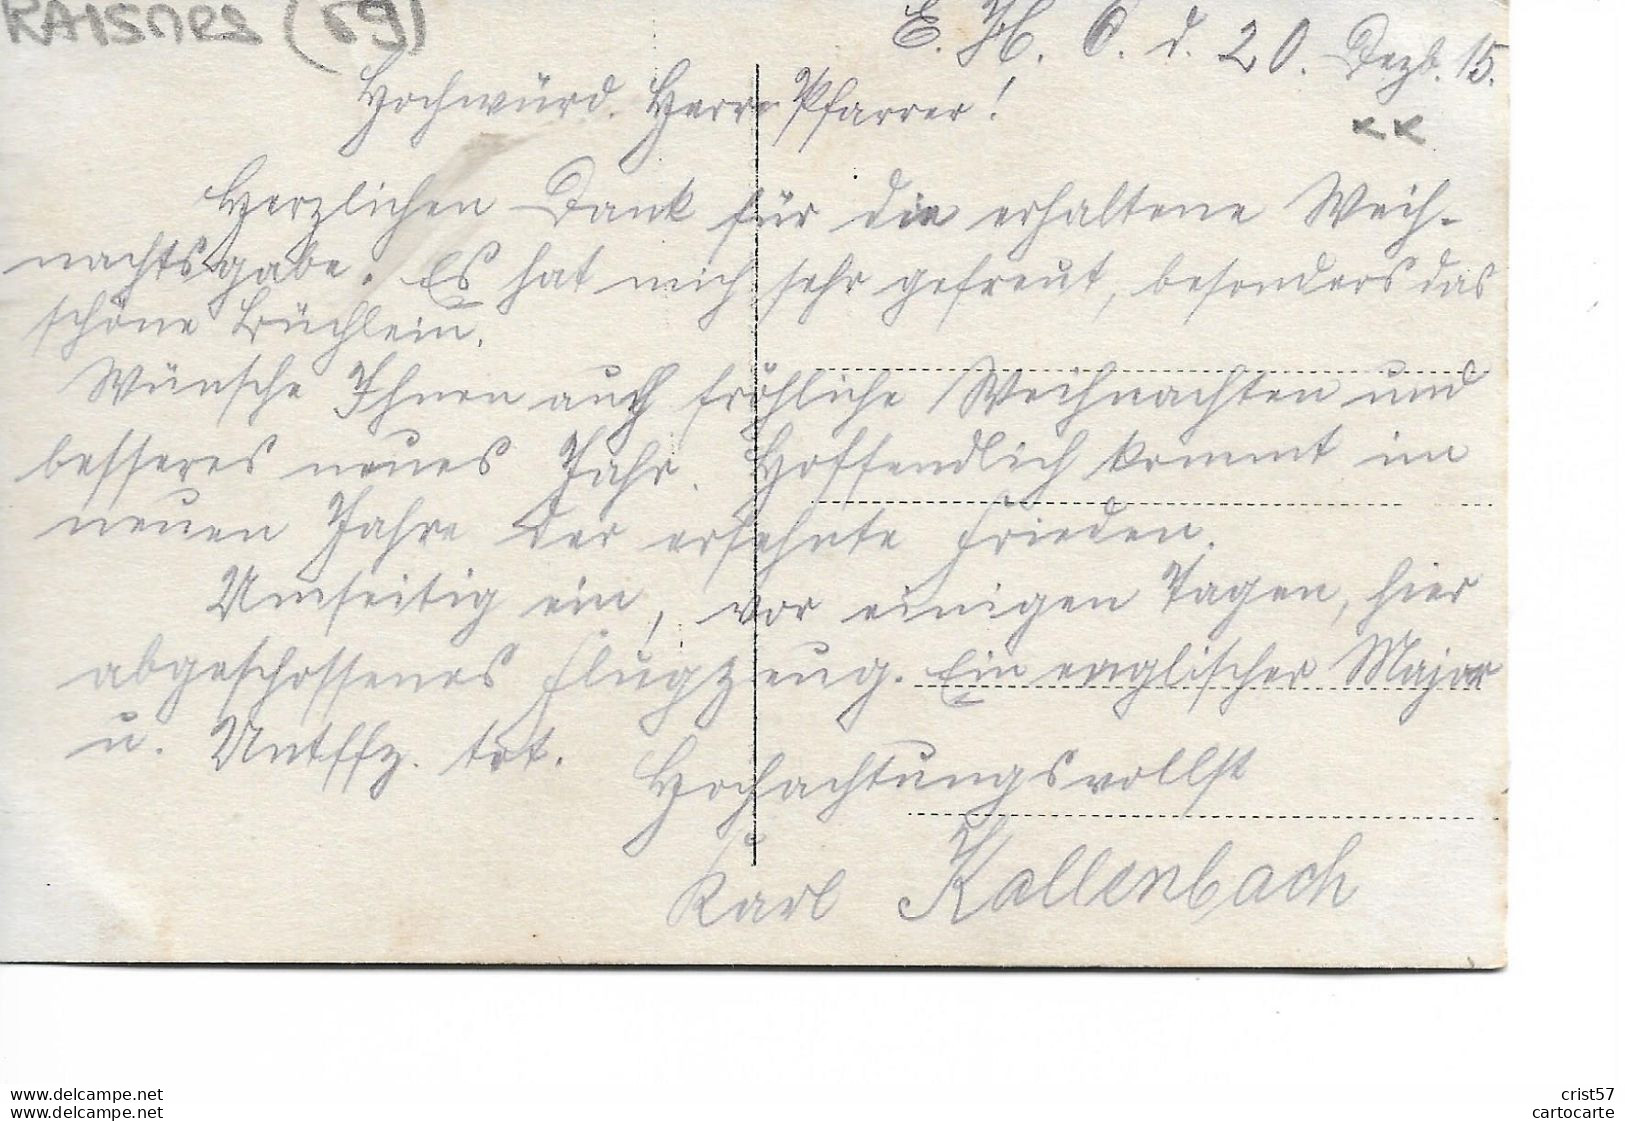 RAISMES (59)
E. H. O. d. 20. Dezb. 15.
Hochwürd. Herr Pfarrer!
Herzlichen Dank für die erhaltene Weih-
nachtsgabe. Es hat mich sehr gefreut, besonders das
schöne Büchlein.
Wünsche Ihnen auch fröhliche Weihnachten und
besseres neues Jahr. Hoffendlich kommt im
neuen Jahre der ersehnte Frieden.
Umseitig ein, vor einigen Tagen, hier
abgeschossenes Flugzeug. Ein englischer Major
u. Untffz. tot.
Hochachtungsvollst
Karl Kallenbach
delcampe.net
delcampe.net
crist57
cartocarte